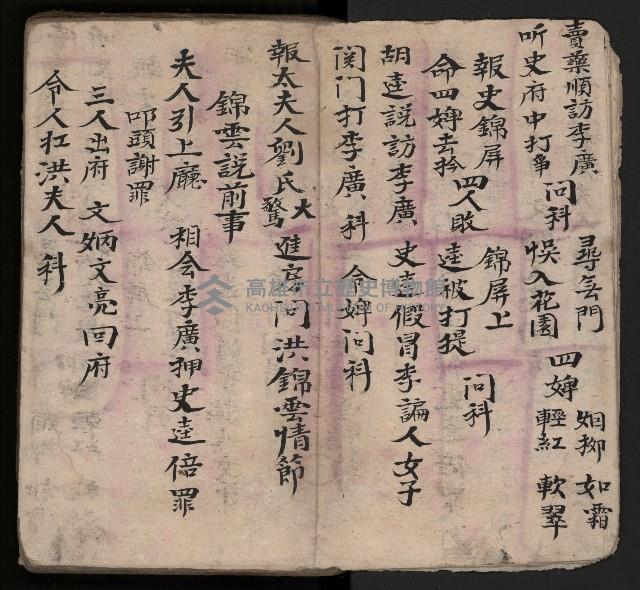 賣藥順訪李廣
听史府中打爭 问科 尋無門
悞入花園 四婢 如柳 如霜
輕紅 軟翠
報史錦屏
命四婢去扲 四人敗 錦屏上
胡逵説訪李廣 史逵假冒李諞人女子
逵被打提 问科
関门打李廣 科 命婢问科
報太夫人劉氏大驚 進房问洪錦雲情節
錦雲説前事
夫人引上廰 相会李廣押史逵倍罪
叩頭謝罪
三人出府 文炳文亮回府
令人扛洪夫人 科
高雄市立歷史博物館
KAOHSIUNG MUSEUM OF HISTORY